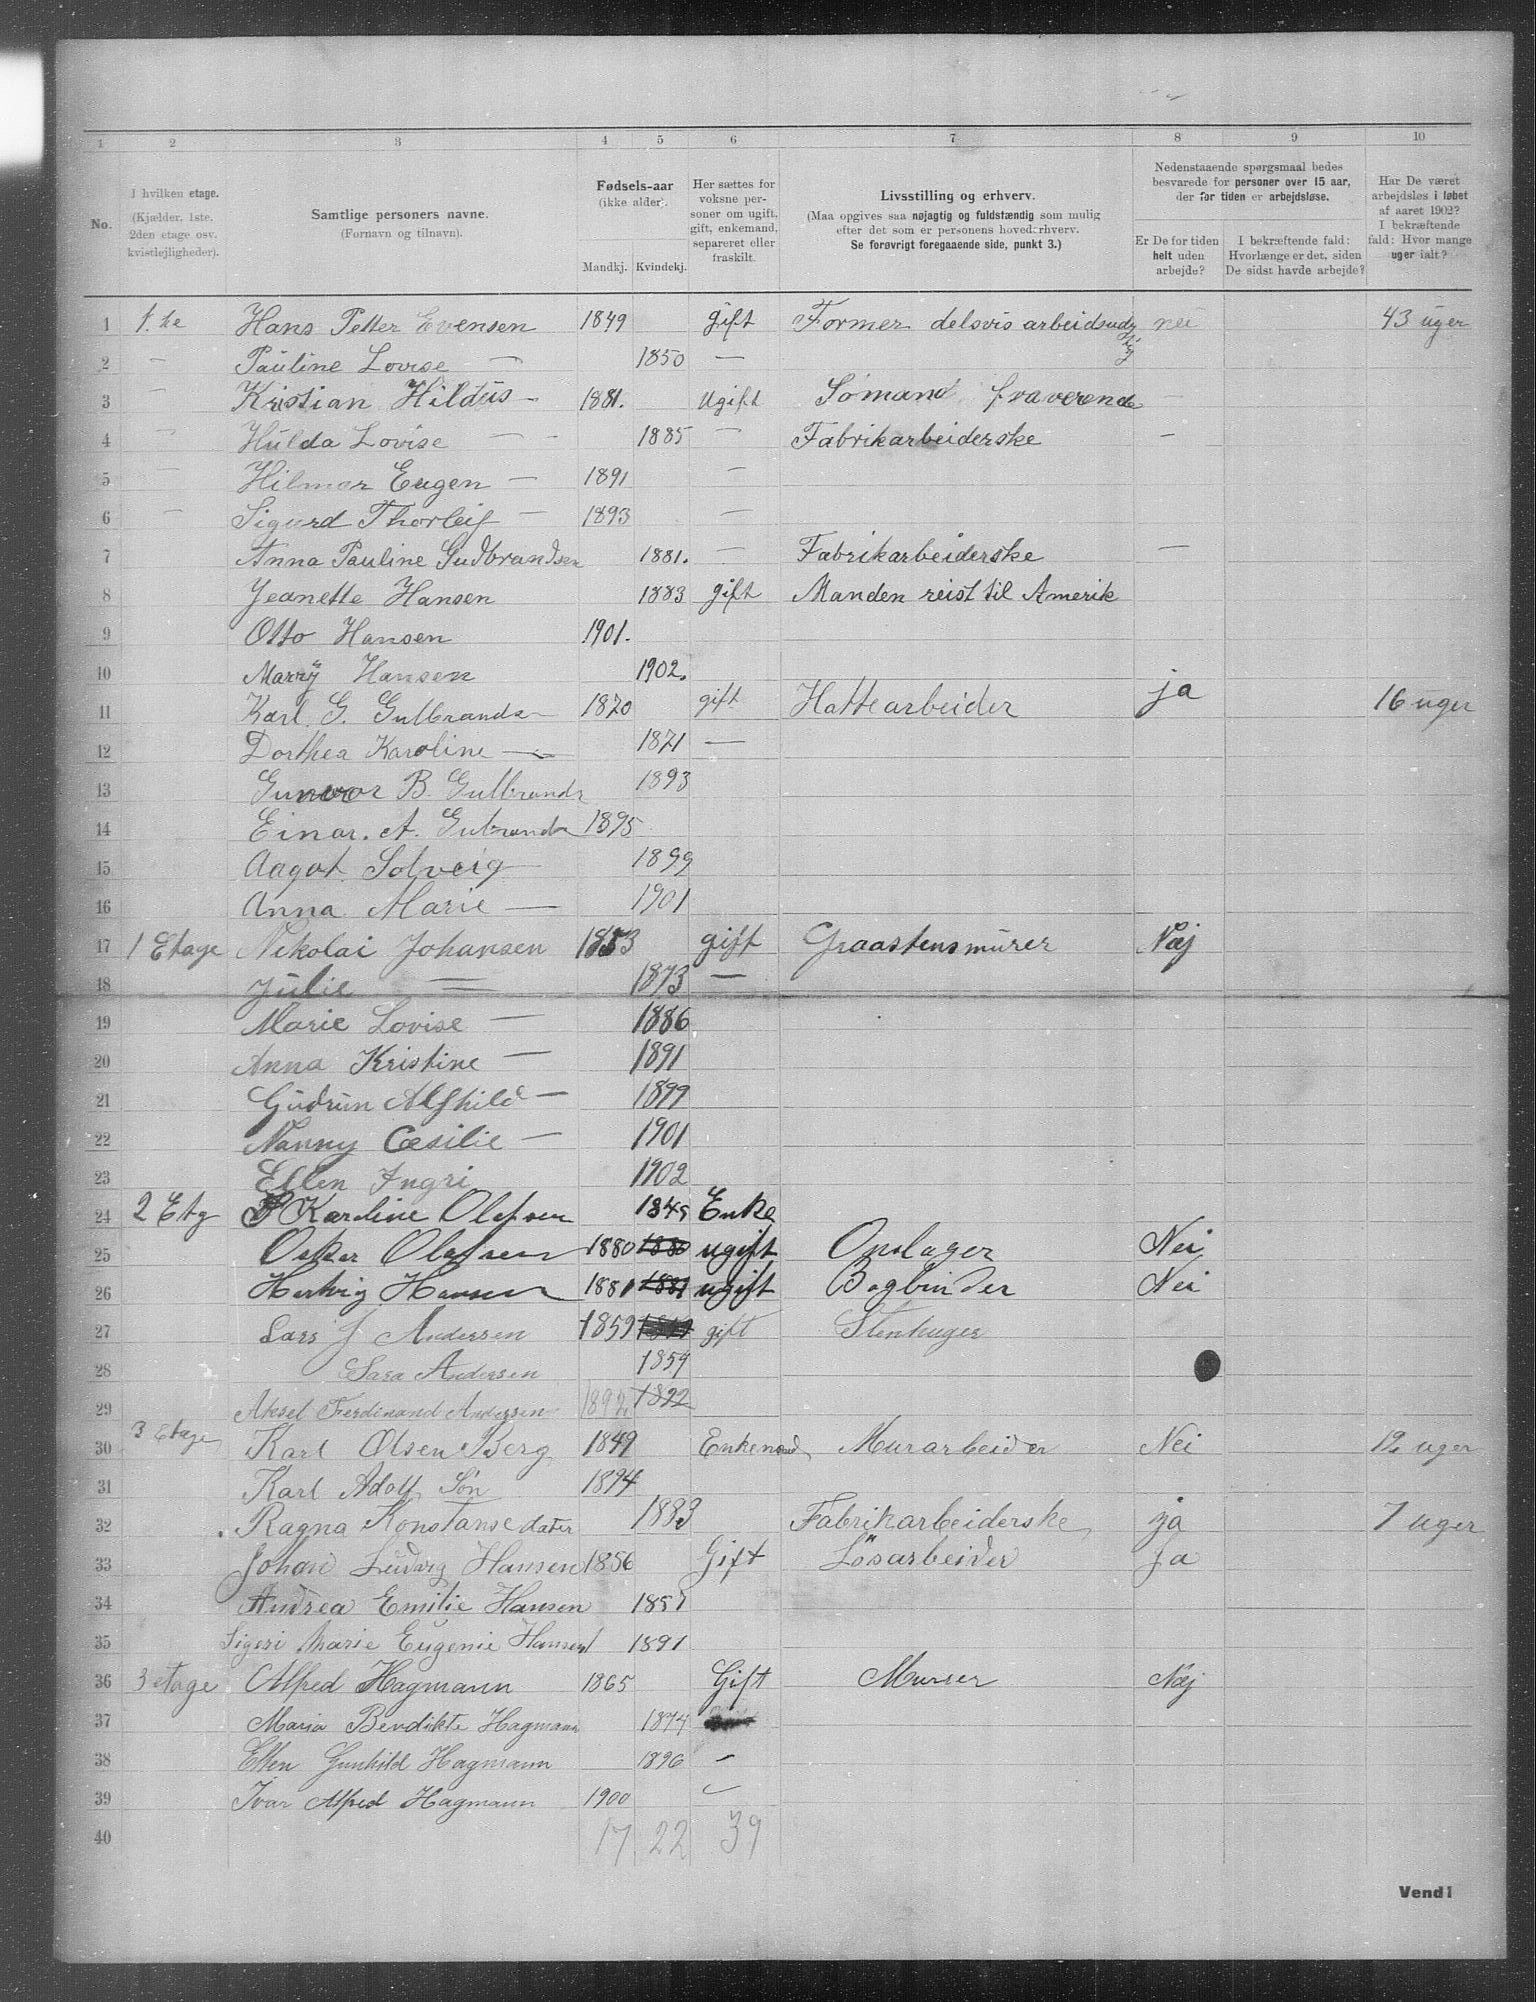 1 2 3 4 5 6 7 8 9 10
No.
I hvilken etage.
(Kjælder, 1ste.
2den etage osv.
kvistlejligheder).
Samtlige personers navne.
(Fornavn og tilnavn).
Fødsels-aar
(ikke alder).
Mandkj. Kvindekj.
Her sættes for
voksne per-
soner om ugift,
gift, enkemand,
separeret eller
fraskilt.
Livsstilling og erhverv.
(Maa opgives saa nøjagtig og fuldstændig som mulig
efter det som er personens hovederhverv.
Se forøvrigt foregaaende side, punkt 3.)
Nedenstaaende spørgsmaal bedes
besvarede for personer over 15 aar,
der for tiden er arbejdsløse.
Er De for tiden
helt uden
arbejde?
I bekræftende fald:
Hvorlænge er det, siden
De sidst havde arbejde?
Har De været
arbejdsløs i løbet
af aaret 1902?
I bekræftende
fald: Hvor mange
uger ialt?
1 1.te Hans Petter Evensen 1849 gift Former delsvis arbeidsudygtig nei 43 uger
2 — Pauline Lovise — 1850 —
3 — Kristian Hildus — 1881. Ugift Sömand fraverende —
4 — Hulda Lovise — 1885 — Fabrikarbeiderske —
5 — Hilmar Eugen — 1891 —
6 — Sigurd Thorleif — 1893 —
7 Anna Pauline Gudbrandsen 1881. — Fabrikarbeiderske —
8 Jeanette Hansen 1883 gift Manden reist til Amerik
9 Otto Hansen 1901.
10 Marry Hansen 1902.
11 Karl. G. Gulbrands 1870 gift Hattearbeider ja 16 uger
12 Dorthea Karoline — 1871 —
13 Gunvor B. Gulbrands 1893
14 Einar. A. Gulbrands 1895
15 Aagot Solveig — 1899
16 Anna Marie — 1901
17 1 Etage Nikolai Johansen 1853 gift Graastensmürer Næj
18 Julie — 1873 —
19 Marie Lovise — 1886
20 Anna Kristine — 1891
21 Gudrun Alfhild — 1899
22 Nanny Cæsilie — 1901
23 Ellen Ingri 1902
24 2 Etg Karoline Olefsen 1845 Enke
25 Osker Olefsen 1880 1880 ugift Opslager Nei
26 Hartvig Hansen 1881 1881 ugift Bogbinder Nei
27 Lars J Andersen 1859 gift Stenhuger
28 Sara Andersen 1859
29 Aksel Ferdinand Andersen 1892. 1892
30 3 Etage Karl Olsen Berg 1849 Enkemand Murarbeider Nei 12 uger
31 Karl Adolf Sön 1894
32 Ragna Konstanse dater 1883 Fabrikarbeiderske ja 7 uger
33 Johan Ludvig Hansen 1856 Gift Lösarbeider Ja
34 Andrea Emilie Hansen 1857
35 Sigeri Marie Eugenie Hansen 1891
36 3 etage Alfred Hagmann 1865 Gift Murer Næj
37 Maria Bendikte Hagmann 1874
38 Ellen Gunhild Hagmann 1896 —
39 Ivar Alfred Hagmann 1900 —
40 17 22 39
Vend!